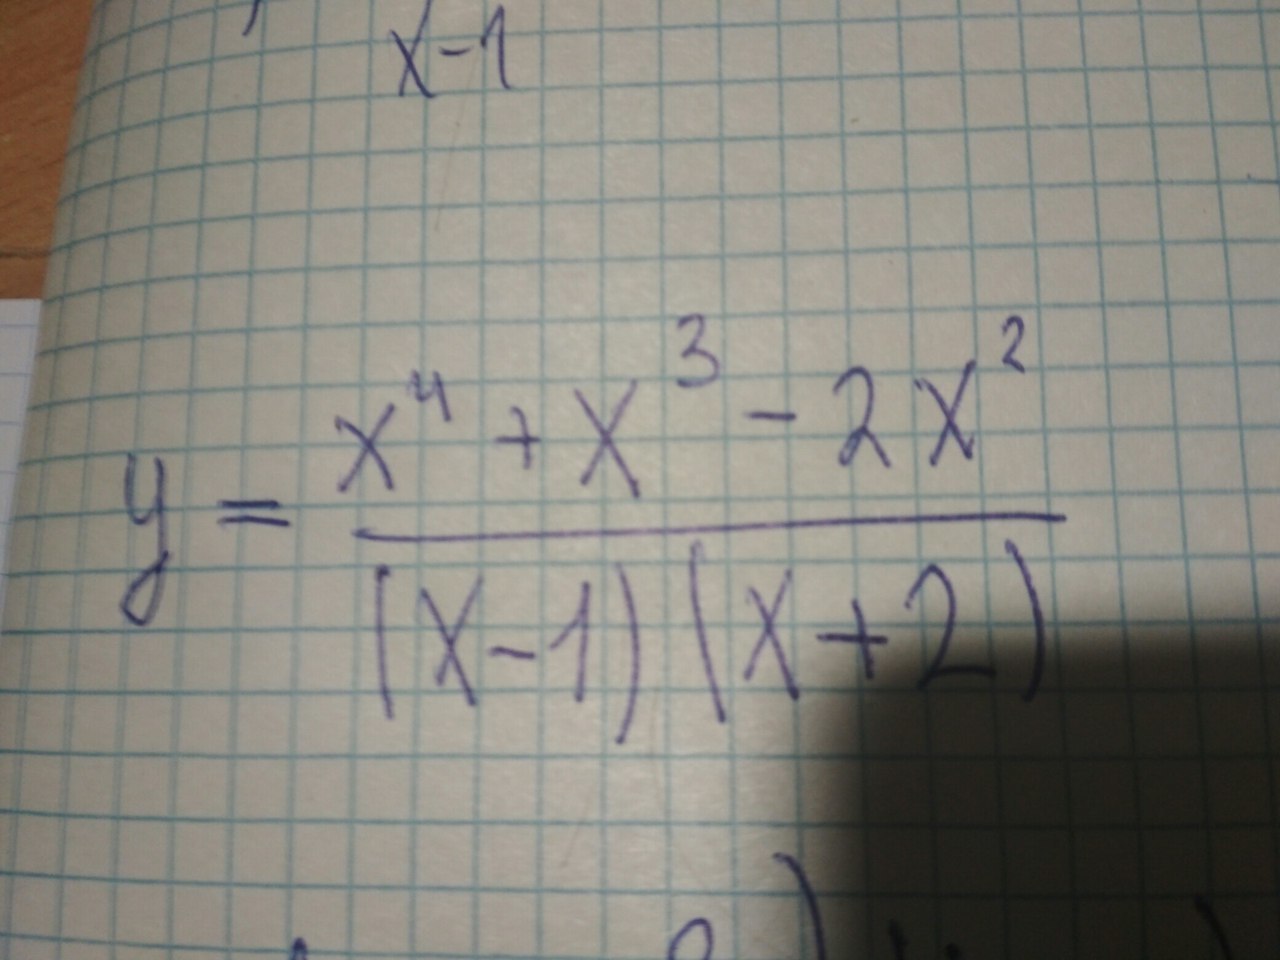 x-1
y = \frac{x^4 + x^3 - 2x^2}{(x-1)(x+2)}